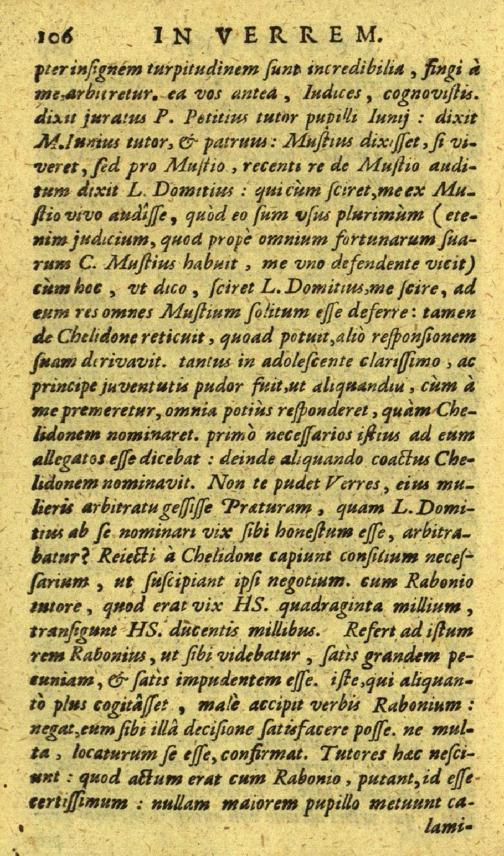 106 IN VERREM.
pter inſignem turpitudinem ſunt incredibilia, fingi à
me arbitretur. ea vos antea, Iudices, cognoviſtis.
dixit juratus P. Petitius tutor pupilli Iunij: dixit
M. Iunius tutor, & patruus: Muſtius dixiſſet, ſi vi-
veret, ſed pro Muſtio, recenti re de Muſtio audi-
tum dixit L. Domitius: qui cùm ſciret, me ex Mu-
ſtio vivo audîſſe, quòd eo ſum vſus plurimùm (ete-
nim judicium, quod propè omnium fortunarum ſua-
rum C. Muſtius habuit, me vno defendente vicit)
cùm hoc, vt dico, ſciret L. Domitius, me ſcire, ad
eum res omnes Muſtium ſolitum eſſe deferre: tamen
de Chelidone reticuit, quoad potuit, aliò reſponſionem
ſuam derivavit. tantus in adoleſcente clariſſimo, ac
principe juventutis pudor fuit, ut aliquandiu, cùm à
me premeretur, omnia potiùs reſponderet, quàm Che-
lidonem nominaret. primò neceſſarios iſtius ad eum
allegatos eſſe dicebat: deinde aliquando coactus Che-
lidonem nominavit. Non te pudet Verres, eius mu-
lieris arbitratu geſſiſſe Præturam, quam L. Domi-
tius ab ſe nominari vix ſibi honeſtum eſſe, arbitra-
batur? Reiecti à Chelidone capiunt conſilium neceſ-
ſarium, ut ſuſcipiant ipſi negotium. cum Rabonio
tutore, quod erat vix HS. quadraginta millium,
tranſigunt HS. ducentis millibus. Refert ad iſtum
rem Rabonius, ut ſibi videbatur, ſatis grandem pe-
cuniam, & ſatis impudentem eſſe. iſte, qui aliquan-
tò plus cogitâſſet, malè accipit verbis Rabonium:
negat, eum ſibi illâ deciſione ſatisfacere poſſe. ne mul-
ta, locaturum ſe eſſe, confirmat. Tutores hæc neſci-
unt: quod actum erat cum Rabonio, putant, id eſſe
certiſſimum: nullam maiorem pupillo metuunt ca-
lami-